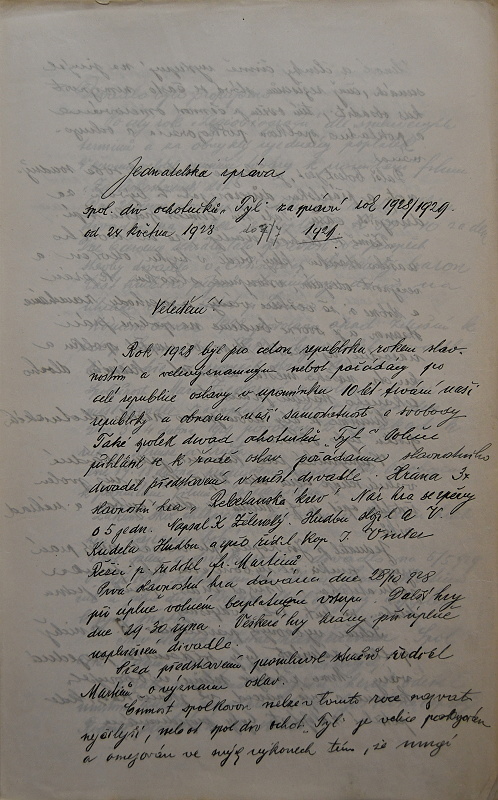 Jednatelská zpráva
spol. div. ochotníků „Tyl“ za správní rok 1928/1929.
od 24 května 1928 do 1929.
Velectění!
Rok 1928 byl po celou republiku rokem slav-
nostním a velevýznamným neboť pořádány po
celé republice oslavy v upomínku 10 let trvání naší
republiky a obnovení naší samostatnosti a svobody
Také spolek divad. ochotníků „Tyl“ v Poličce
přihlásil se k řadě oslav pořádáním slavnostního
divadel. představení v měst. divadle. Hrána 3x
slavnostní hra „Rebelanská krev“. Nár. hra se zpěvy
o 5 jedn. Napsal K. Želenský. Hudbu složil A. V.
Kudela. Hudbu a zpěv řídil kap. J. Vinter
Režii p. ředitel Martinů
Prvá slavnostní hra dávána dne 28/10 928
při úplně volném bezplatném vstupu. Další hry
dne 29-30 října. Veškeré hry hrány při úplně
naplněném divadle.
Před představením promluvil ředitel
Martinů o významu oslav.
Činnost spolkovou nelze v tomto roce nazvati
nejčilejší, neboť spol. div. ochot. „Tyl“ je velice poškozován
a omezován ve svých výkonech tím, že mnozí